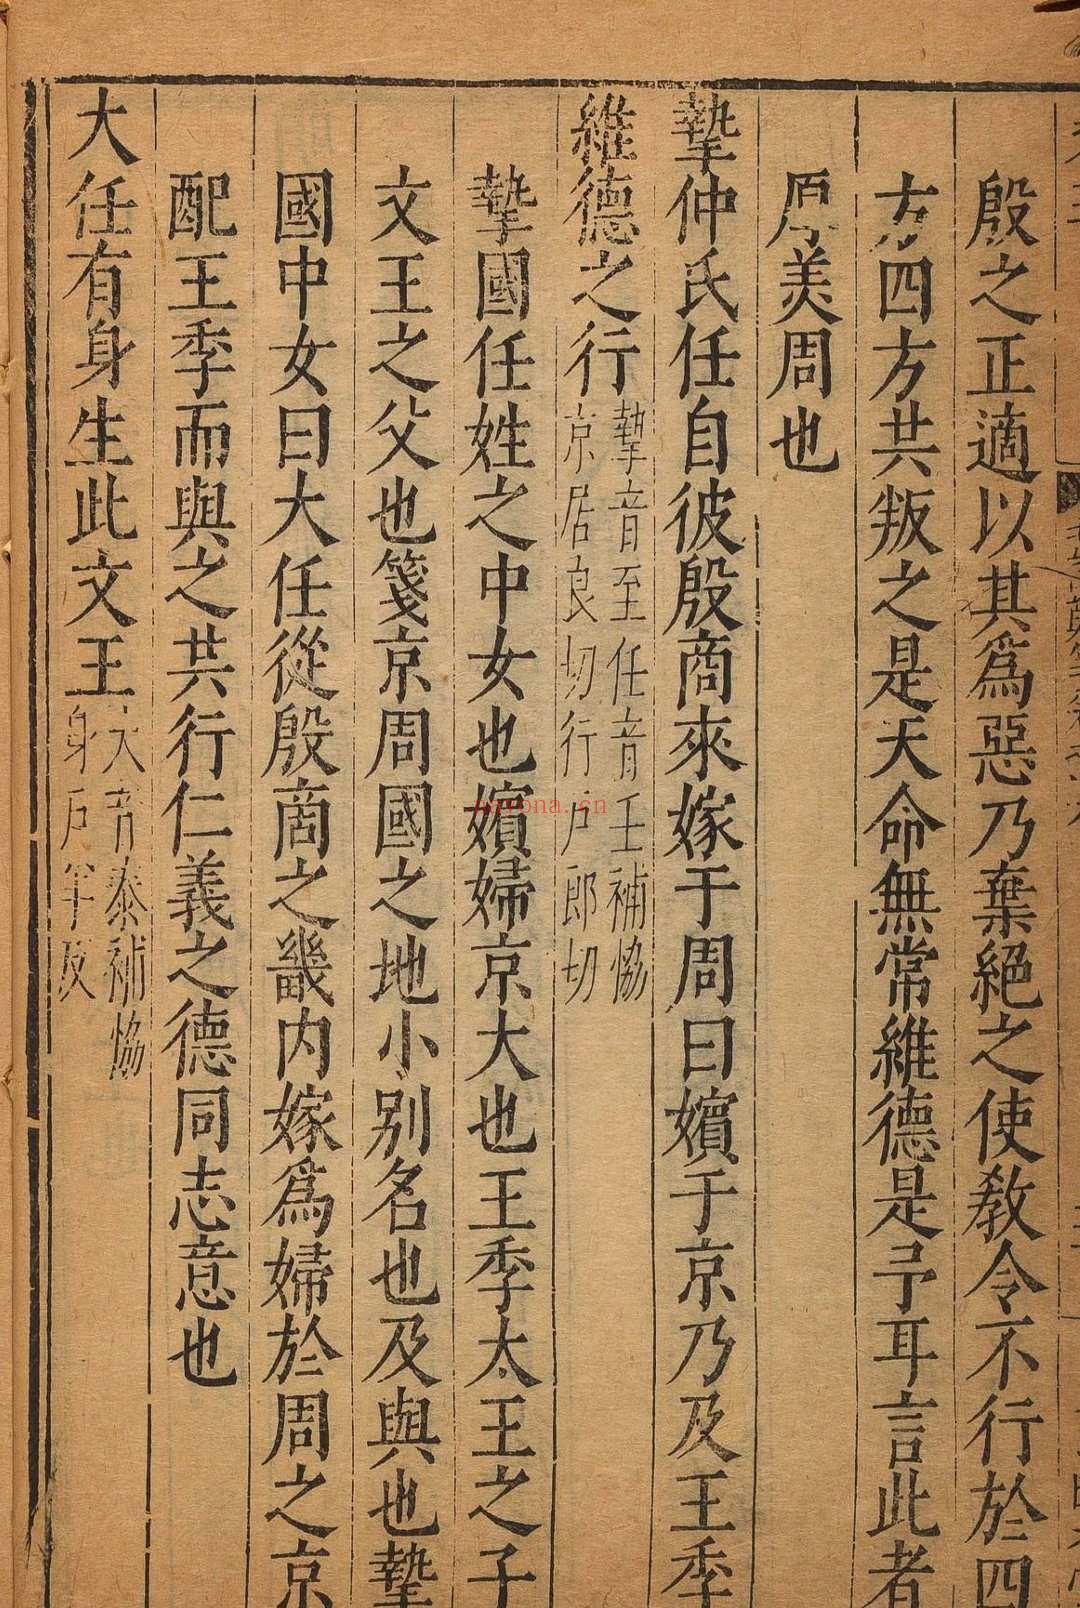 殷之正適以其爲惡乃棄絕之使教令不行於四
方四方共叛之是天命無常維德是予耳言此者
厚美周也
摯仲氏任自彼殷商來嫁于周曰嬪于京乃及王季
維德之行摯音至任音壬補恊京居良切行戶郎切
摯國任姓之中女也嬪婦京大也王季太王之子
文王之父也箋京周國之地小别名也及與也摯
國中女曰大任從殷商之畿内嫁爲婦於周之京
配王季而與之共行仁義之德同志意也
大任有身生此文王大音泰補恊身戶羊反
nayona.cn